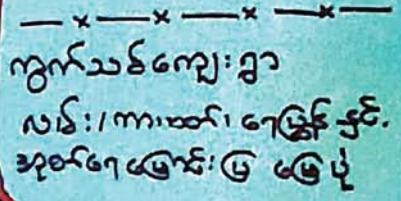 ကွက်သစ်ကျေးရွာ
လမ်း၊ ကားဂိတ်၊ ရေမြွန် နှင့်
အုတ်ရေမြောင်းပြ မြေပုံ